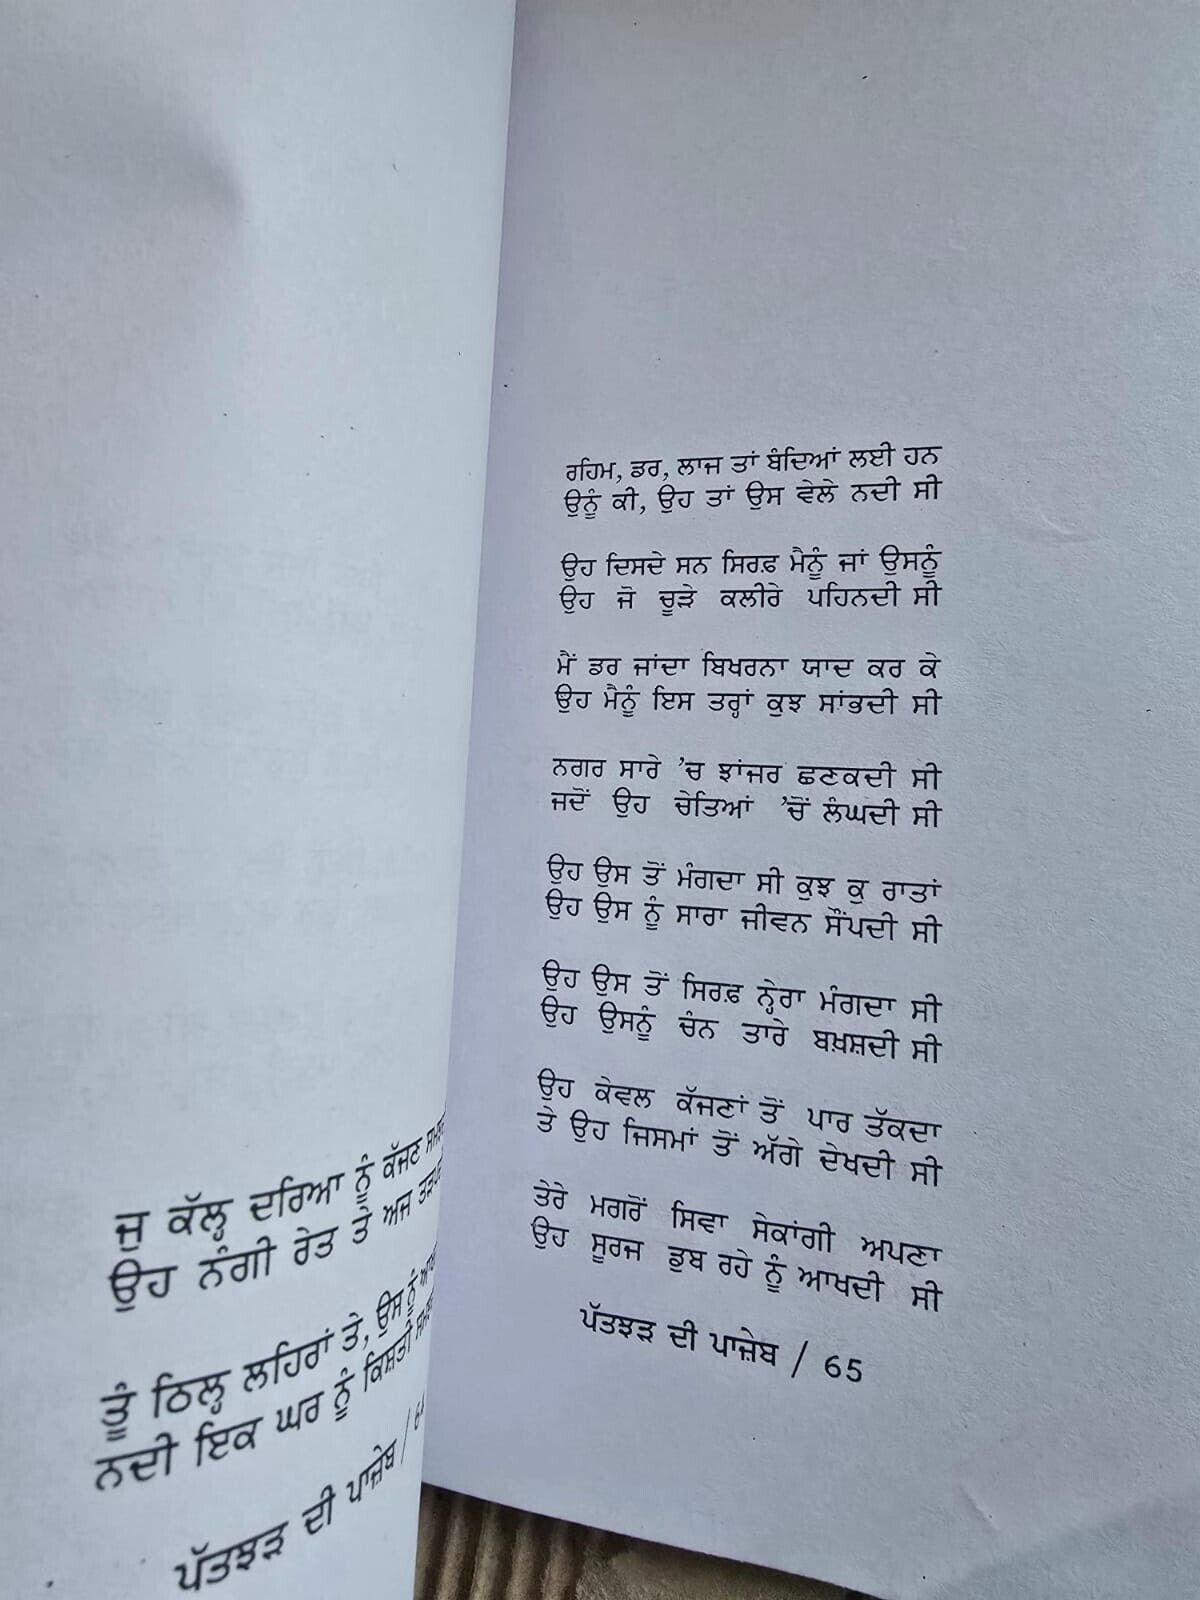 ਜੁ ਕੱਲ੍ਹ ਦਰਿਆ ਨੂੰ ਕੱਜਣ
ਉਹ ਨੰਗੀ ਰੇਤ ਤੇ ਅਜ
ਤੂੰ ਠਿਲ੍ਹ ਲਹਿਰਾਂ ਤੇ, ਉਸ ਨੂੰ
ਨਦੀ ਇਕ ਘਰ ਨੂੰ ਕਿਸ਼ਤੀ
ਪੱਤਝੜ ਦੀ ਪਾਜ਼ੇਬ / 64
ਰਹਿਮ, ਡਰ, ਲਾਜ ਤਾਂ ਬੰਦਿਆਂ ਲਈ ਹਨ
ਉਨੂੰ ਕੀ, ਉਹ ਤਾਂ ਉਸ ਵੇਲੇ ਨਦੀ ਸੀ
ਉਹ ਦਿਸਦੇ ਸਨ ਸਿਰਫ਼ ਮੈਨੂੰ ਜਾਂ ਉਸਨੂੰ
ਉਹ ਜੋ ਚੂੜੇ ਕਲੀਰੇ ਪਹਿਨਦੀ ਸੀ
ਮੈਂ ਡਰ ਜਾਂਦਾ ਬਿਖਰਨਾ ਯਾਦ ਕਰ ਕੇ
ਉਹ ਮੈਨੂੰ ਇਸ ਤਰ੍ਹਾਂ ਕੁਝ ਸਾਂਭਦੀ ਸੀ
ਨਗਰ ਸਾਰੇ ’ਚ ਝਾਂਜਰ ਛਣਕਦੀ ਸੀ
ਜਦੋਂ ਉਹ ਚੇਤਿਆਂ ’ਚੋਂ ਲੰਘਦੀ ਸੀ
ਉਹ ਉਸ ਤੋਂ ਮੰਗਦਾ ਸੀ ਕੁਝ ਕੁ ਰਾਤਾਂ
ਉਹ ਉਸ ਨੂੰ ਸਾਰਾ ਜੀਵਨ ਸੌਂਪਦੀ ਸੀ
ਉਹ ਉਸ ਤੋਂ ਸਿਰਫ਼ ਨ੍ਹੇਰਾ ਮੰਗਦਾ ਸੀ
ਉਹ ਉਸਨੂੰ ਚੰਨ ਤਾਰੇ ਬਖ਼ਸ਼ਦੀ ਸੀ
ਉਹ ਕੇਵਲ ਕੱਜਣਾਂ ਤੋਂ ਪਾਰ ਤੱਕਦਾ
ਤੇ ਉਹ ਜਿਸਮਾਂ ਤੋਂ ਅੱਗੇ ਦੇਖਦੀ ਸੀ
ਤੇਰੇ ਮਗਰੋਂ ਸਿਵਾ ਸੇਕਾਂਗੀ ਅਪਣਾ
ਉਹ ਸੂਰਜ ਡੁਬ ਰਹੇ ਨੂੰ ਆਖਦੀ ਸੀ
ਪੱਤਝੜ ਦੀ ਪਾਜ਼ੇਬ / 65